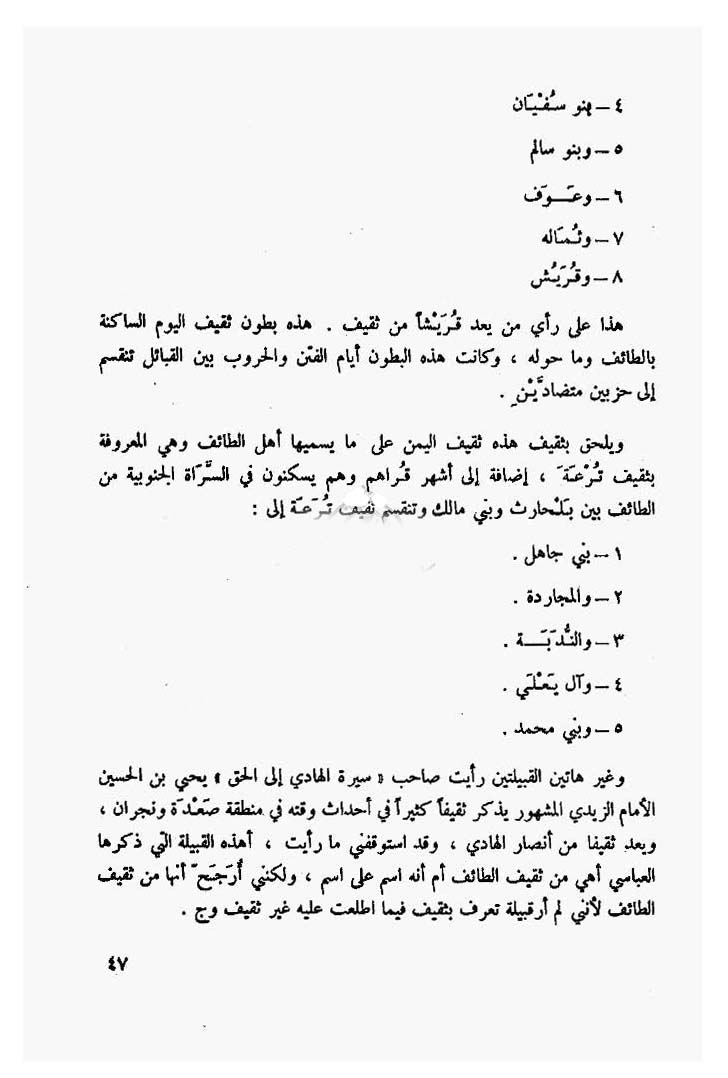 ٤ – بنو سُفْيَان
٥ – وبنو سالم
٦ – وعَوف
٧ – وثُمَاله
٨ – وقُرَيْش
هذا على رأي من يعد قُرَيْشاً من ثقيف . هذه بطون ثقيف اليوم الساكنة
بالطائف وما حوله ، وكانت هذه البطون أيام الفتن والحروب بين القبائل تنقسم
إلى حزبين متضادَّيْنِ .
ويلحق بثقيف هذه ثقيف اليمن على ما يسميها أهل الطائف وهي المعروفة
بثقيف تُرْعَةَ ، إضافة إلى أشهر قُراهم وهم يسكنون في السَّرَاة الجنوبية من
الطائف بين بَلْحارث وبني مالك وتنقسم ثقيف تُرَعَة إلى :
١ – بني جاهل .
٢ – والمجاردة .
٣ – والنُّدَبَة .
٤ – وآل يَعْلَي .
٥ – وبني محمد .
وغير هاتين القبيلتين رأيت صاحب « سيرة الهادي إلى الحق » يحيي بن الحسين
الأمام الزيدي المشهور يذكر ثقيفاً كثيراً في أحداث وقته في منطقة صَعْدَة ونجران ،
ويعد ثقيفا من أنصار الهادي ، وقد استوقفني ما رأيت ، أهذه القبيلة التي ذكرها
العباسي أهي من ثقيف الطائف أم أنه اسم على اسم ، ولكنني أُرَجِّح أنها من ثقيف
الطائف لأنني لم أرقبيلة تعرف بثقيف فيما اطلعت عليه غير ثقيف وج .
٤٧